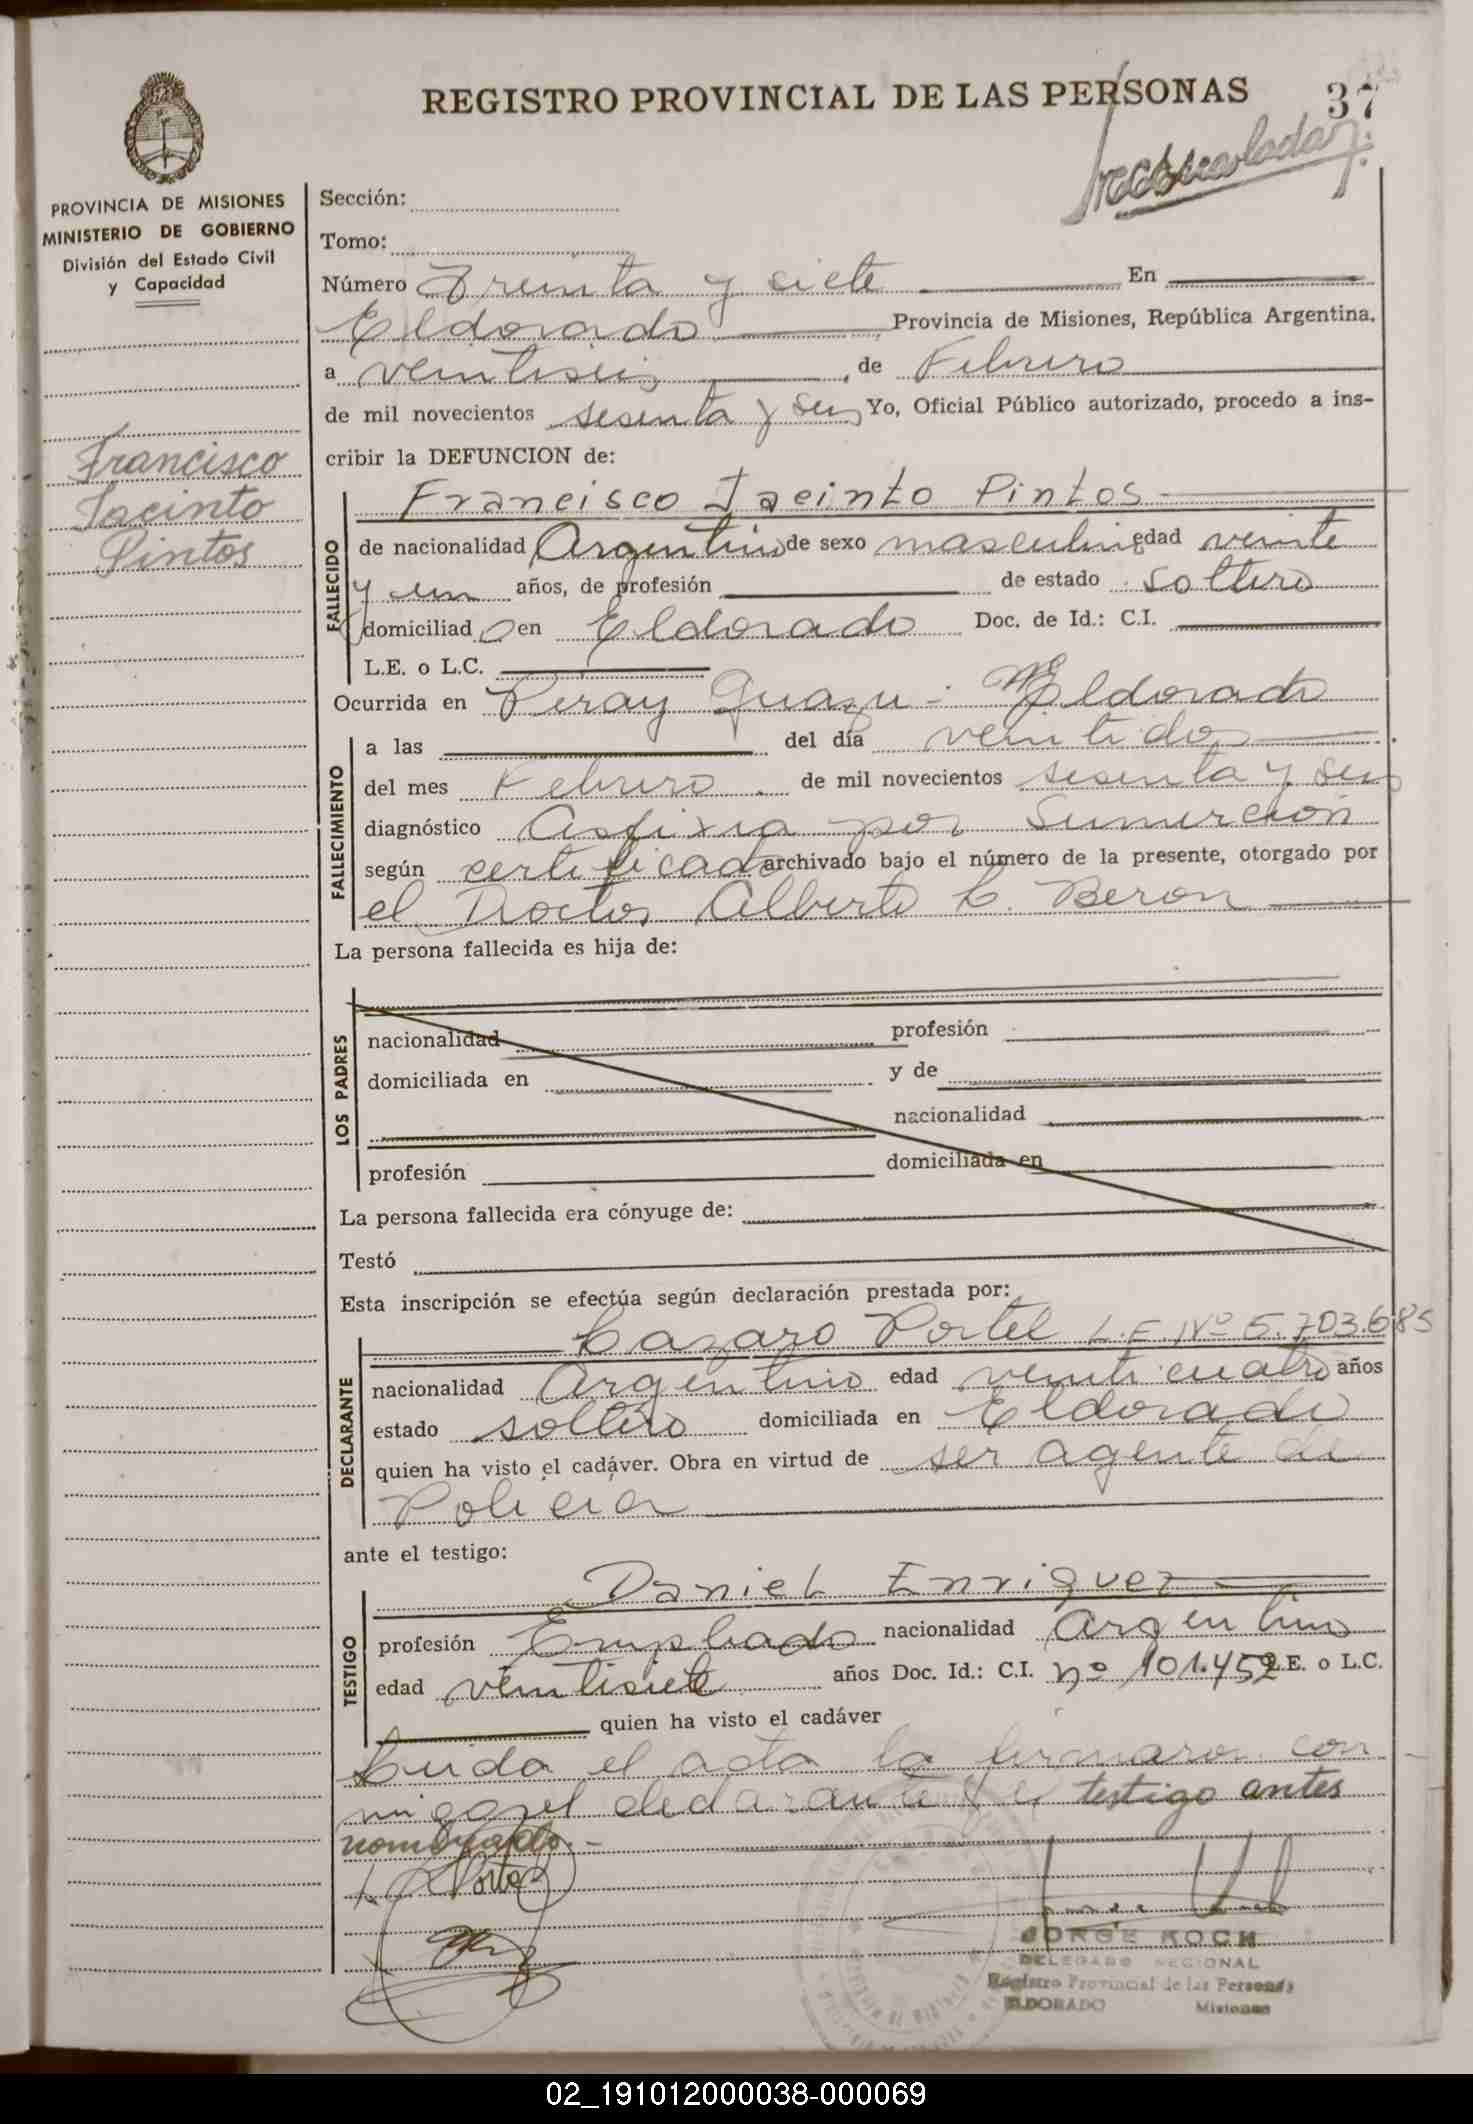 REGISTRO PROVINCIAL DE LAS PERSONAS
37
PROVINCIA DE MISIONES
MINISTERIO DE GOBIERNO
División del Estado Civil
y Capacidad
Francisco
Jacinto
Pintos
Sección:
Tomo:
Número Treinta y siete En
Eldorado Provincia de Misiones, República Argentina,
a veintiseis, de Febrero
de mil novecientos sesenta y seis Yo, Oficial Público autorizado, procedo a ins-
cribir la DEFUNCION de:
Francisco Jacinto Pintos
FALLECIDO
de nacionalidad Argentino de sexo masculino edad veinte
y un años, de profesión de estado soltero
domiciliado en Eldorado Doc. de Id.: C.I.
L.E. o L.C.
Ocurrida en Piray Guazu - Eldorado
FALLECIMIENTO
a las del día veintidos
del mes Febrero. de mil novecientos sesenta y seis
diagnóstico Asfixia por Sumercion
según certificado archivado bajo el número de la presente, otorgado por
el Doctor Alberto L. Beron
La persona fallecida es hija de:
LOS PADRES
nacionalidad profesión
domiciliada en y de
nacionalidad
profesión domiciliada en
La persona fallecida era cónyuge de:
Testó
Esta inscripción se efectúa según declaración prestada por:
Lazaro Portel L.E. Nº 5.703.685
DECLARANTE
nacionalidad Argentino edad veinticuatro años
estado soltero domiciliada en Eldorado
quien ha visto el cadáver. Obra en virtud de ser agente de
Policia
ante el testigo:
Daniel Enriquez
TESTIGO
profesión Empleado nacionalidad Argentino
edad veintisiete años Doc. Id.: C.I. nº 101.452 L.E. o L.C.
quien ha visto el cadáver
Leida el acta la firmaron con
migo el declarante y el testigo antes
nombrado.-
JORGE KOCH
DELEGADO REGIONAL
Registro Provincial de las Personas
ELDORADO Misiones
02_191012000038-000069